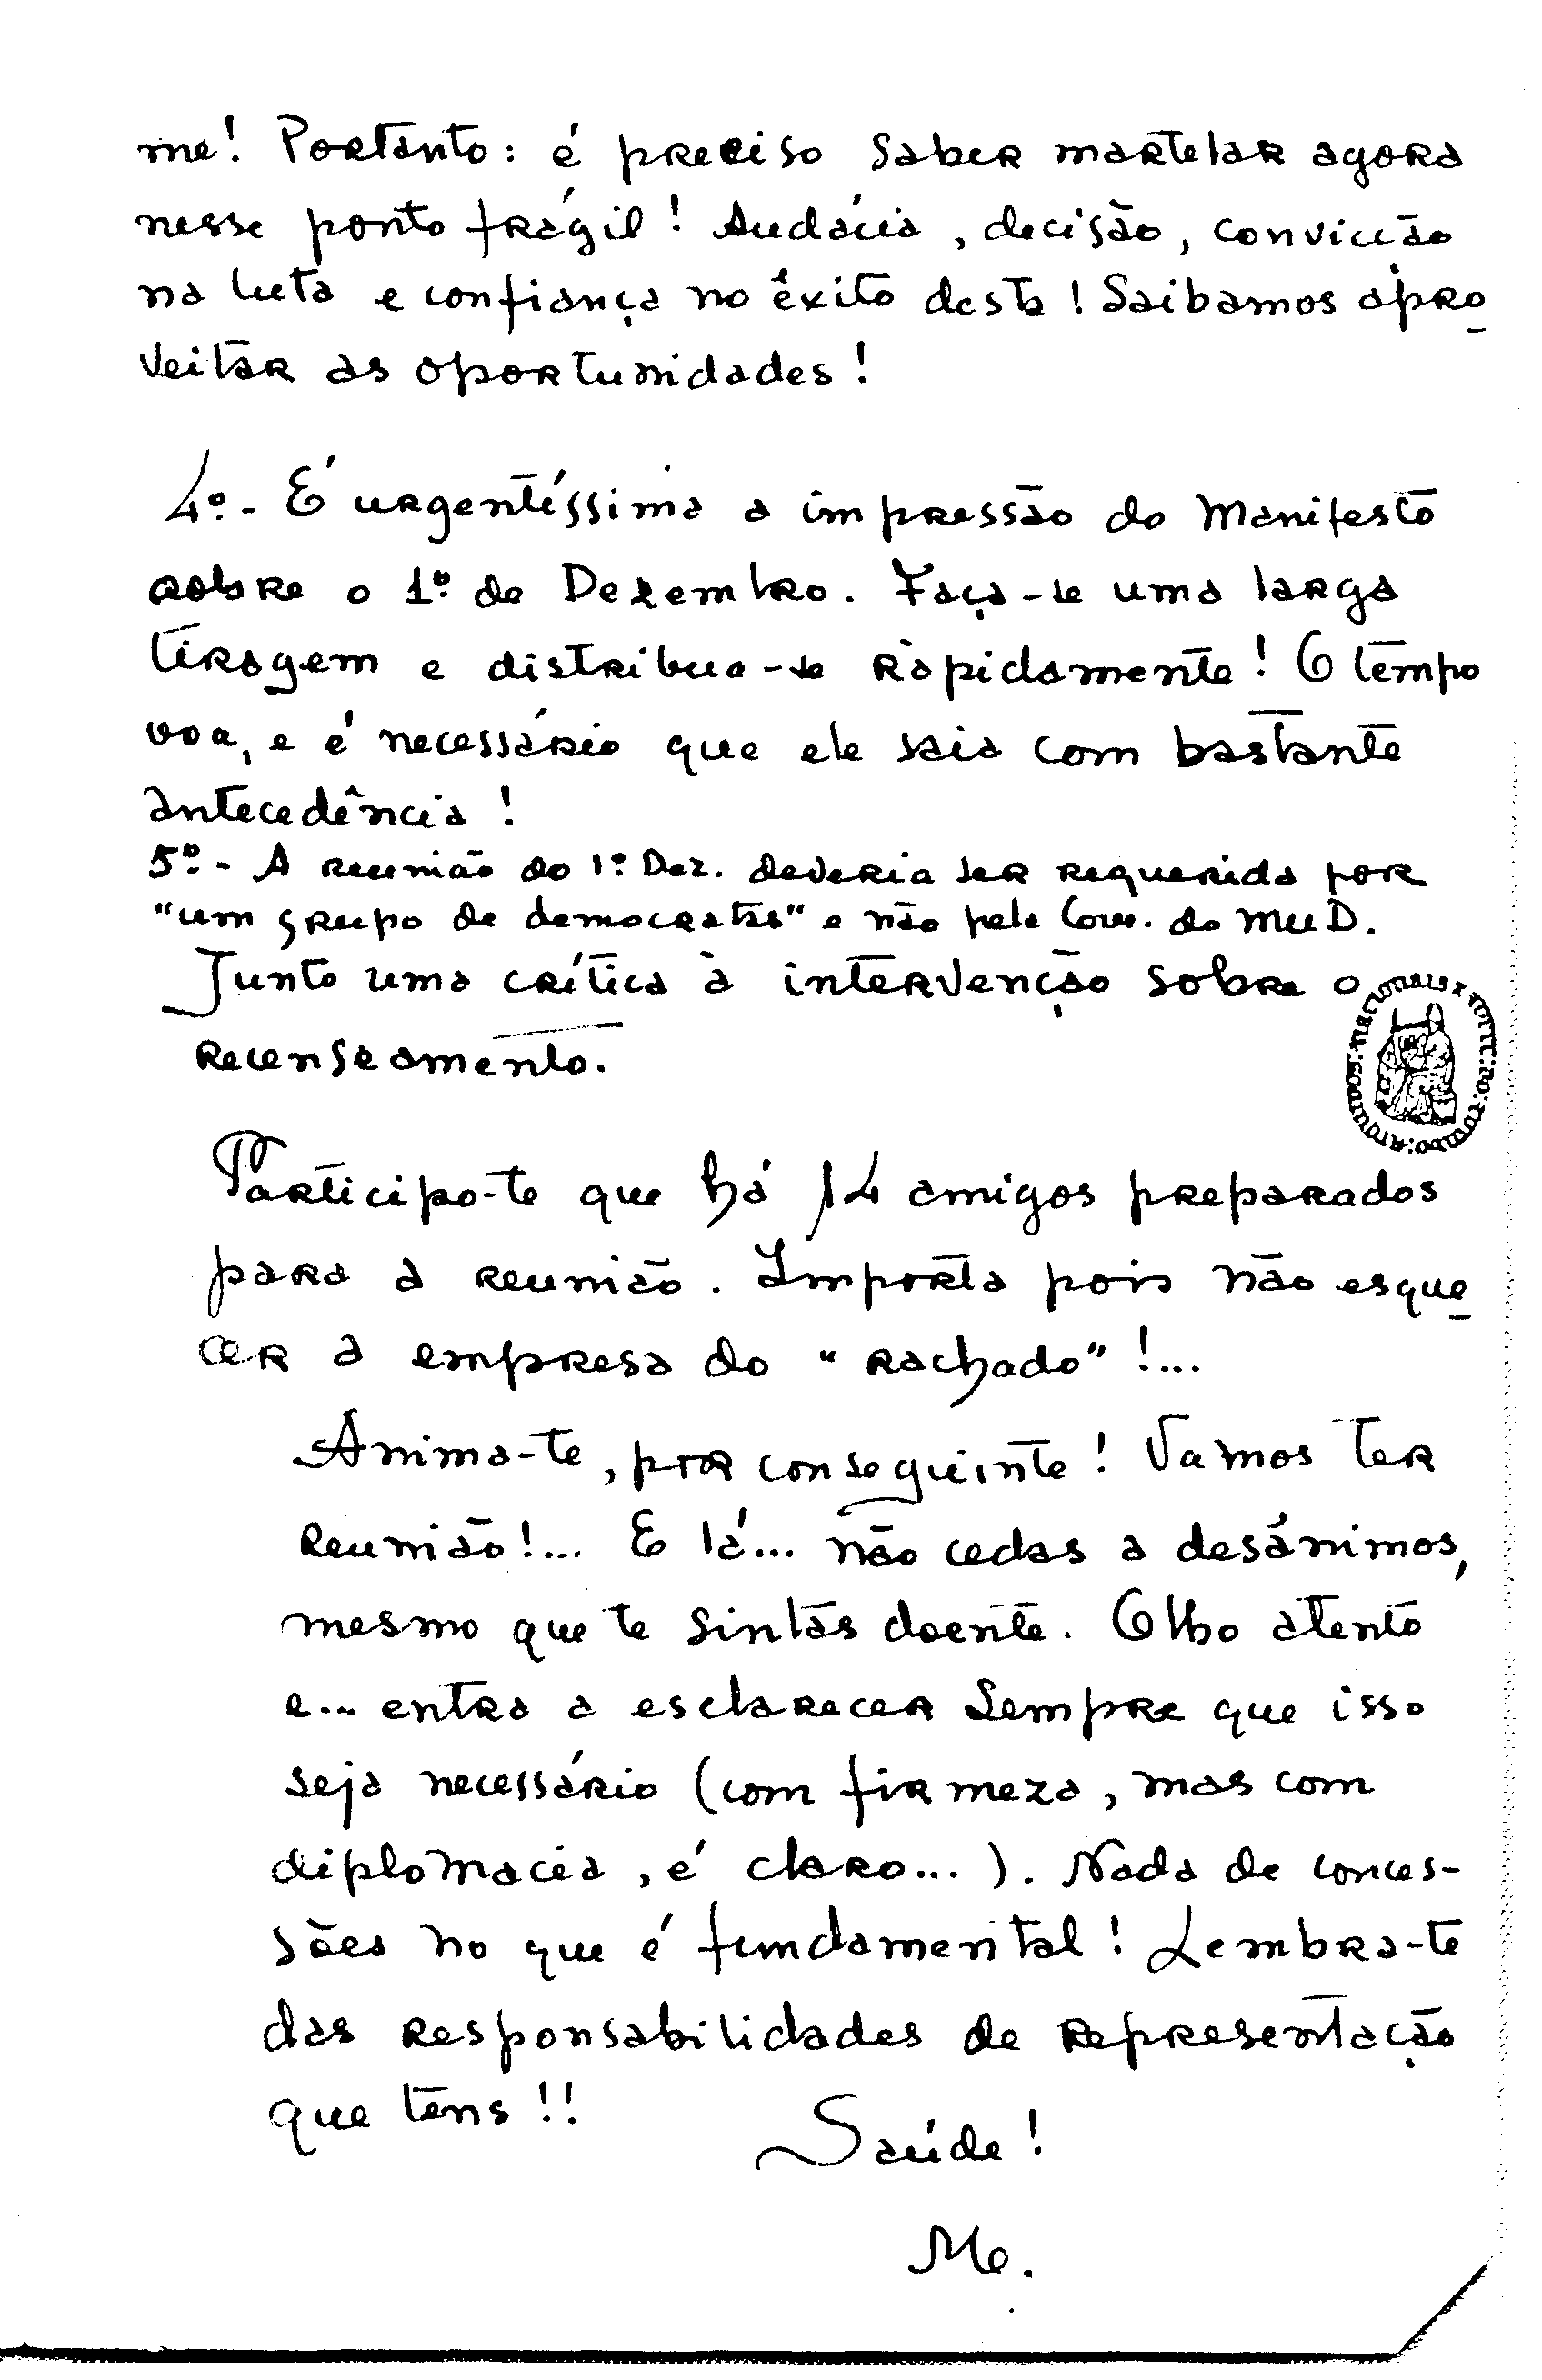 me! Portanto: é preciso saber martelar agora
nesse ponto frágil! Audácia, decisão, convicção
na luta e confiança no êxito desta! Saibamos apro
veitar as oportunidades!
4º.- É urgentíssima a impressão do Manifesto
sobre o 1º. de Dezembro. Faça-se uma larga
tiragem e distribua-se ràpidamente! O tempo
voa, e é necessário que ele saia com bastante
antecedência!
5º.- A reunião do 1º. Dez. deveria ser requerida por
"um grupo de democratas" e não pela Com. do MUD.
Junto uma crítica à intervenção sobre o
recenseamento.
Participo-te que há 14 amigos preparados
para a reunião. Importa pois não esque
cer a empresa do "rachado"!...
Anima-te, por conseguinte! Vamos ter
reunião!... E lá... não cedas a desânimos,
mesmo que te sintas doente. Olho atento
e... entra a esclarecer sempre que isso
seja necessário (com firmeza, mas com
diplomacia, é claro...). Nada de conces-
sões no que é fundamental! Lembra-te
das responsabilidades de representação
que tens!!
Saúde!
M.